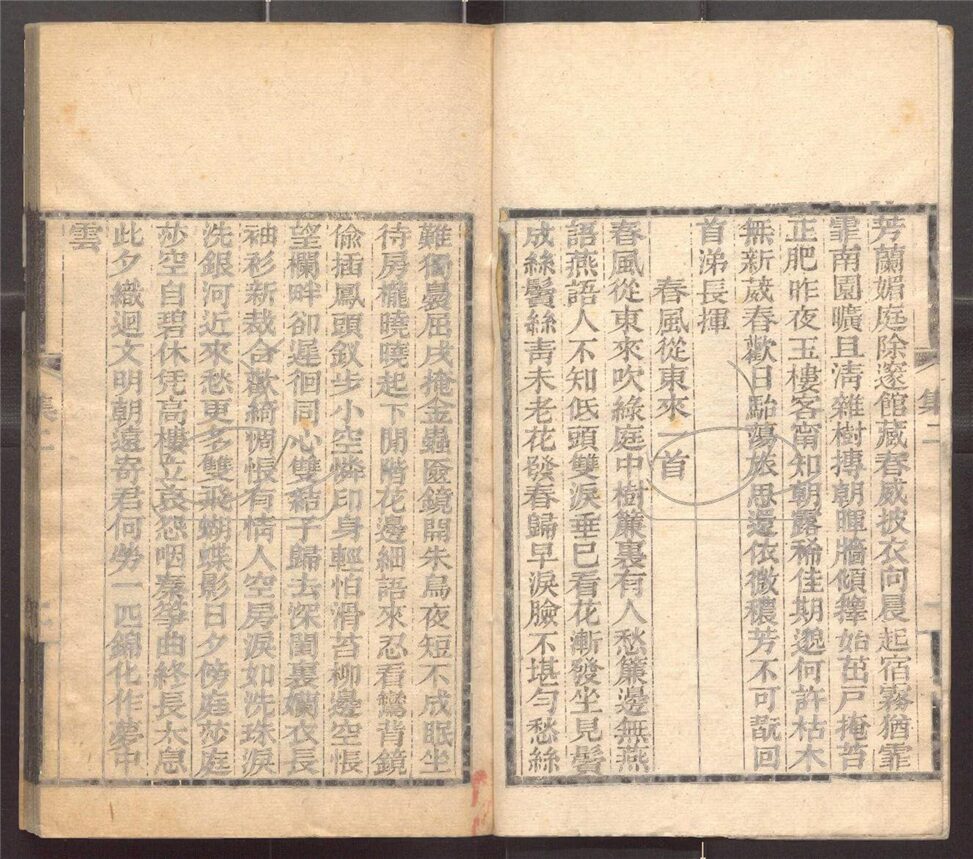 芳蘭媚庭除邃館藏春威披衣向晨起宿霧猶霏
霏南園曠且淸雜樹摶朝暉牆傾籜始茁戸掩苔
正肥昨夜玉樓客甯知朝露稀佳期邈何許枯木
無新葳春歡日駘蕩旅思還依微穠芳不可翫回
首涕長揮
春風從東來一首
春風從東來吹綠庭中樹簾裏有人愁簾邊無燕
語燕語人不知低頭雙淚垂已看花漸發坐見鬢
成絲鬢絲靑未老花發春歸早淚臉不堪勻愁絲
難獨曓屈戌掩金蟲匳鏡開朱鳥夜短不成眠坐
待房櫳曉曉起下閒階花邊細語來忍看鸞背鏡
偷插鳳頭釵步小空憐印身輕怕滑苔柳邊空悵
望欄畔卻遲徊同心雙結子歸去深閨裏嬾衣長
袖衫新裁合歡綺惆悵有情人空房淚如洗珠淚
洗銀河近來愁更多雙飛蝴蝶影日夕傍庭莎庭
莎空自碧休凭高樓立哀怨咽秦箏曲終長太息
此夕織迴文明朝遠寄君何勞一匹錦化作夢中
雲
集二
集二